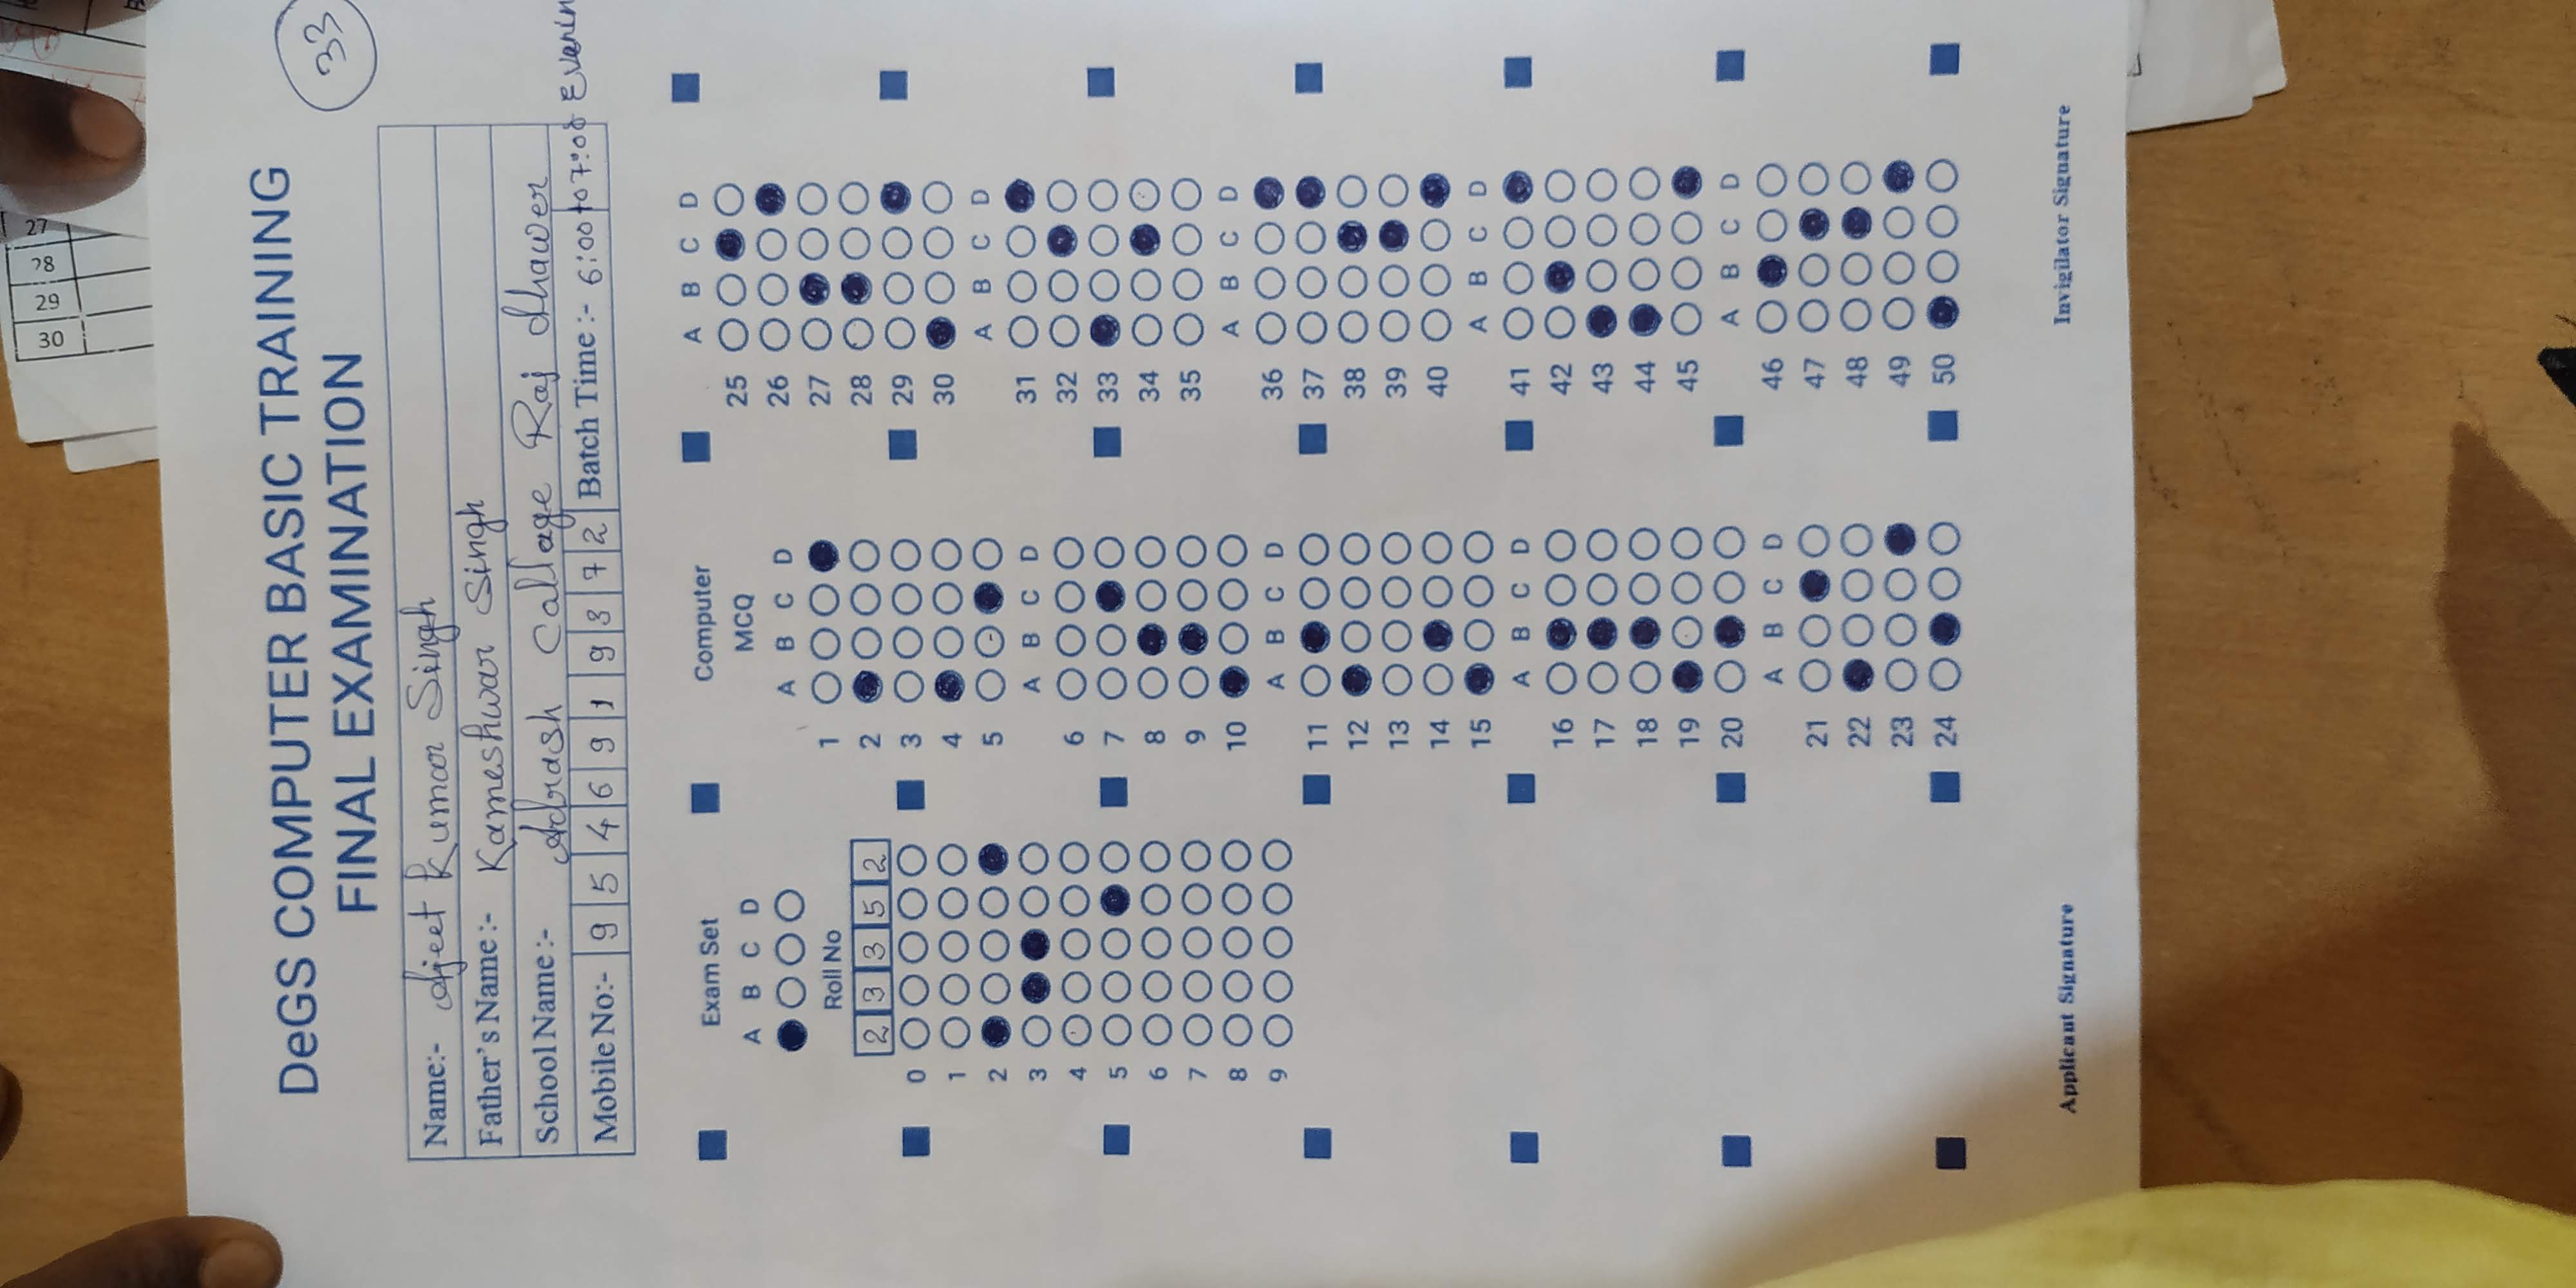 30 29 28 27
DeGS COMPUTER BASIC TRAINING
FINAL EXAMINATION
33
Name:- Ajeet Kumar Singh
Father's Name :- Kameshwar Singh
School Name :- Adrash Callage Raj dhawer
Mobile No:- 9 5 4 6 9 1 9 3 7 2 Batch Time :- 6:00 to 7:00 Evenin
Exam Set
A B C D
Roll No
2 3 3 5 2
0
1
2
3
4
5
6
7
8
9
Computer
MCQ
A B C D
1
2
3
4
5
A B C D
6
7
8
9
10
A B C D
11
12
13
14
15
A B C D
16
17
18
19
20
A B C D
21
22
23
24
A B C D
25
26
27
28
29
30
A B C D
31
32
33
34
35
A B C D
36
37
38
39
40
A B C D
41
42
43
44
45
A B C D
46
47
48
49
50
Applicant Signature
Invigilator Signature